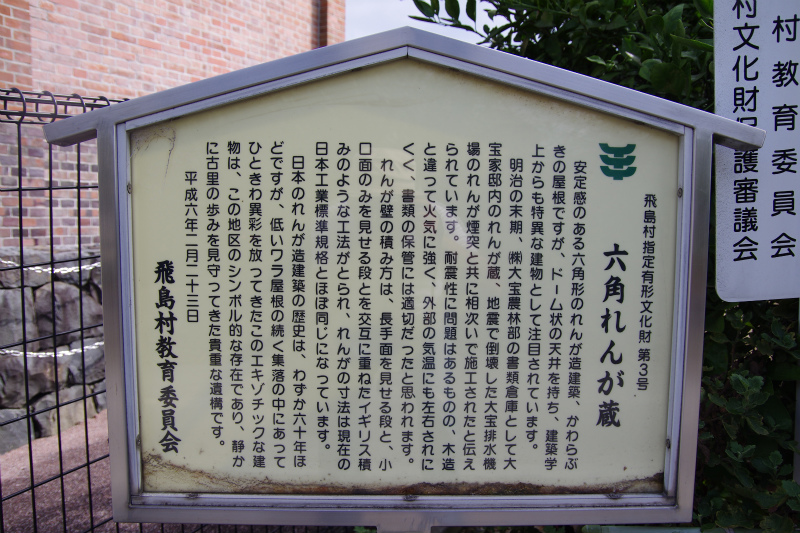 村教育委員会
村文化財保護審議会
飛島村指定有形文化財 第3号
六角れんが蔵
安定感のある六角形のれんが造建築、かわらぶ
きの屋根ですが、ドーム状の天井を持ち、建築学
上からも特異な建物として注目されています。
明治の末期、㈱大宝農林部の書類倉庫として大
宝家邸内のれんが蔵、地震で倒壊した大宝排水機
場のれんが煙突と共に相次いで施工されたと伝え
られています。耐震性に問題はあるものの、木造
と違って火気に強く、外部の気温にも左右されに
くく、書類の保管には適切だったと思われます。
れんが壁の積み方は、長手面を見せる段と、小
口面のみを見せる段とを交互に重ねたイギリス積
みのような工法がとられ、れんがの寸法は現在の
日本工業標準規格とほぼ同じになっています。
日本のれんが造建築の歴史は、わずか六十年ほ
どですが、低いワラ屋根の続く集落の中にあって
ひときわ異彩を放ってきたこのエキゾチックな建
物は、この地区のシンボル的な存在であり、静か
に古里の歩みを見守ってきた貴重な遺構です。
平成六年二月二十三日
飛島村教育委員会